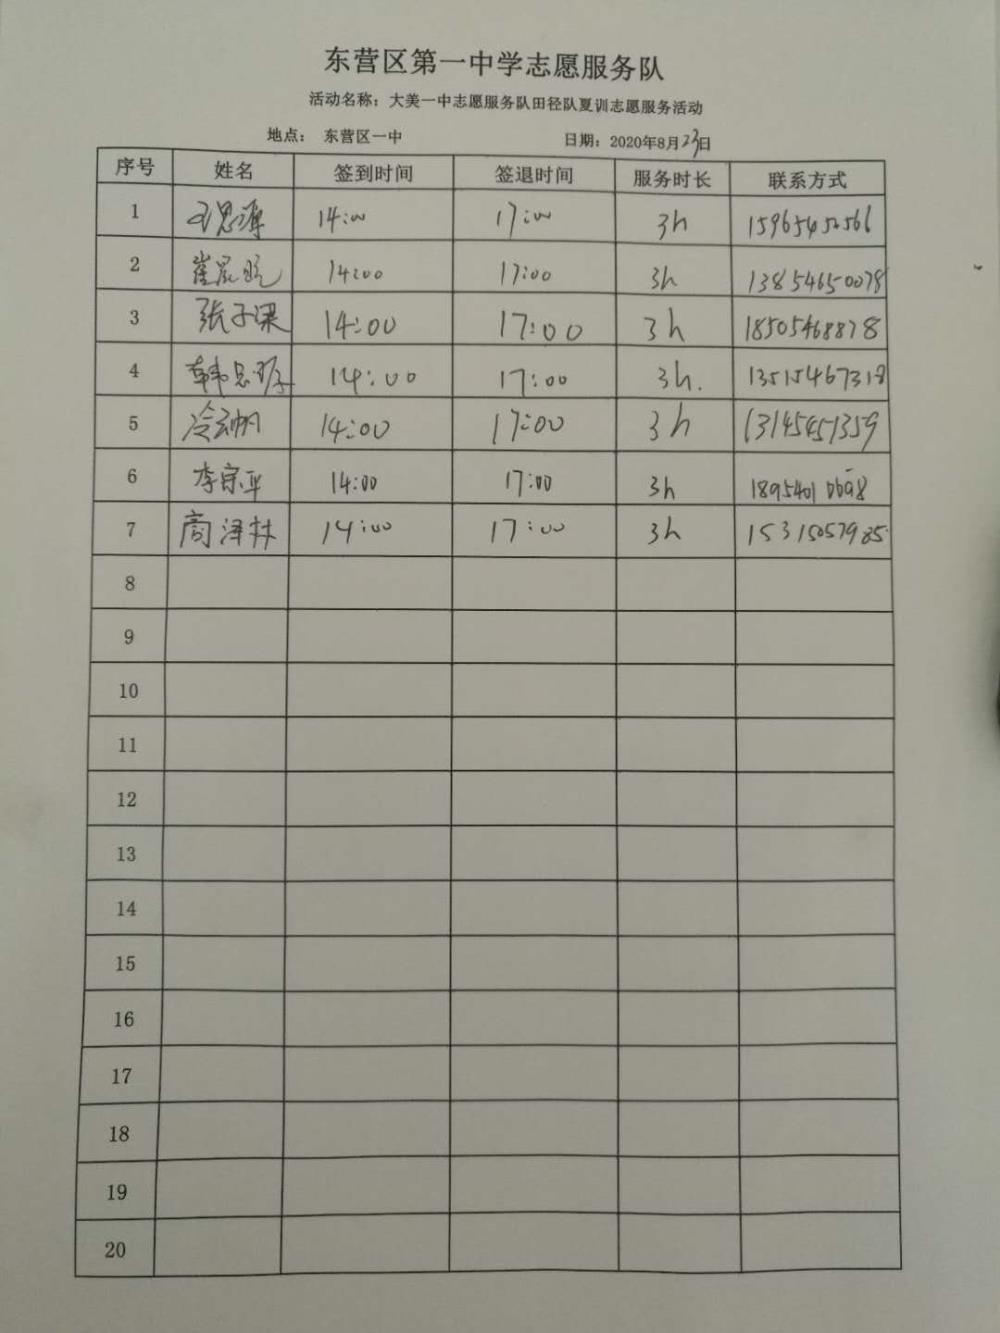 东营区第一中学志愿服务队
活动名称：大美一中志愿服务队田径队夏训志愿服务活动
地点： 东营区一中 日期：2020年8月23日
序号 姓名 签到时间 签退时间 服务时长 联系方式
1 14:00 17:00 3h
2 14:00 17:00 3h 13854650078
3 张子渠 14:00 17:00 3h 18505468878
4 14:00 17:00 3h. 13515467318
5 冷云帆 14:00 17:00 3h 13145451359
6 李宗平 14:00 17:00 3h
7 商泽林 14:00 17:00 3h 15315057985
8
9
10
11
12
13
14
15
16
17
18
19
20